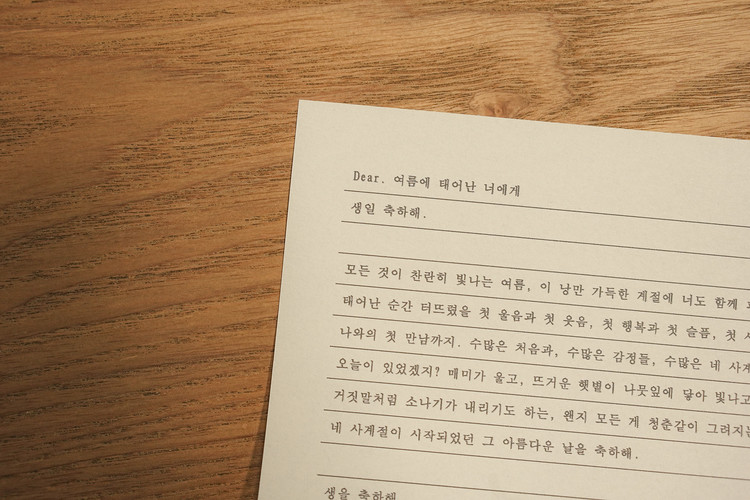 Dear. 여름에 태어난 너에게
생일 축하해.
모든 것이 찬란히 빛나는 여름, 이 낭만 가득한 계절에 너도 함께
태어난 순간 터뜨렸을 첫 울음과 첫 웃음, 첫 행복과 첫 슬픔, 첫
나와의 첫 만남까지. 수많은 처음과, 수많은 감정들, 수많은 네 사계
오늘이 있었겠지? 매미가 울고, 뜨거운 햇볕이 나뭇잎에 닿아 빛나고
거짓말처럼 소나기가 내리기도 하는, 왠지 모든 게 청춘같이 그려지는
네 사계절이 시작되었던 그 아름다운 날을 축하해.
생을 축하해